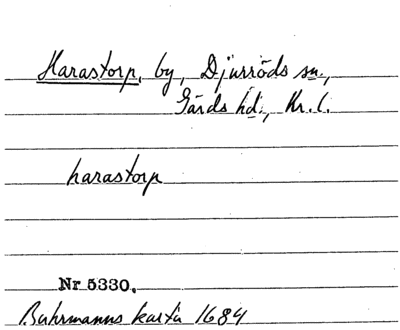 Harastorp, by, Djurröds sn.,
Gärds hd., Kr. l.
harastorp
Nr 5330.
Buhrmanns karta 1684